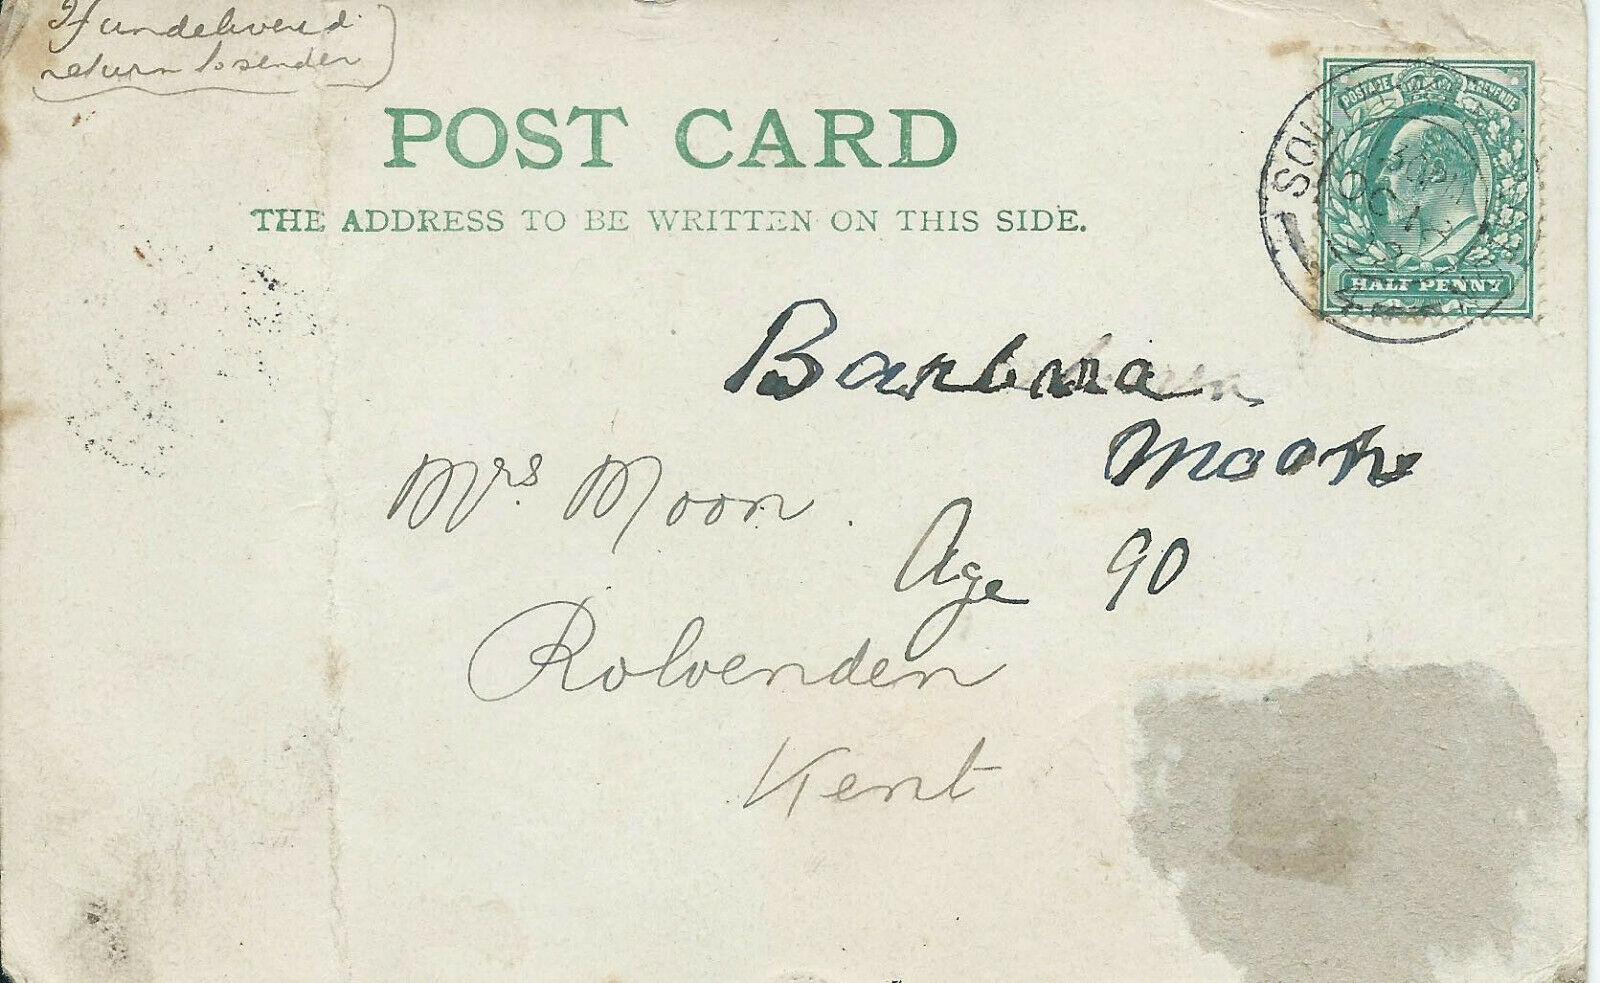 If undelivered
return to sender
POST CARD
THE ADDRESS TO BE WRITTEN ON THIS SIDE.
POSTAGE & REVENUE
HALF PENNY
Barbara
Moon
Mrs Moon.
Age 90
Rolvenden
Kent